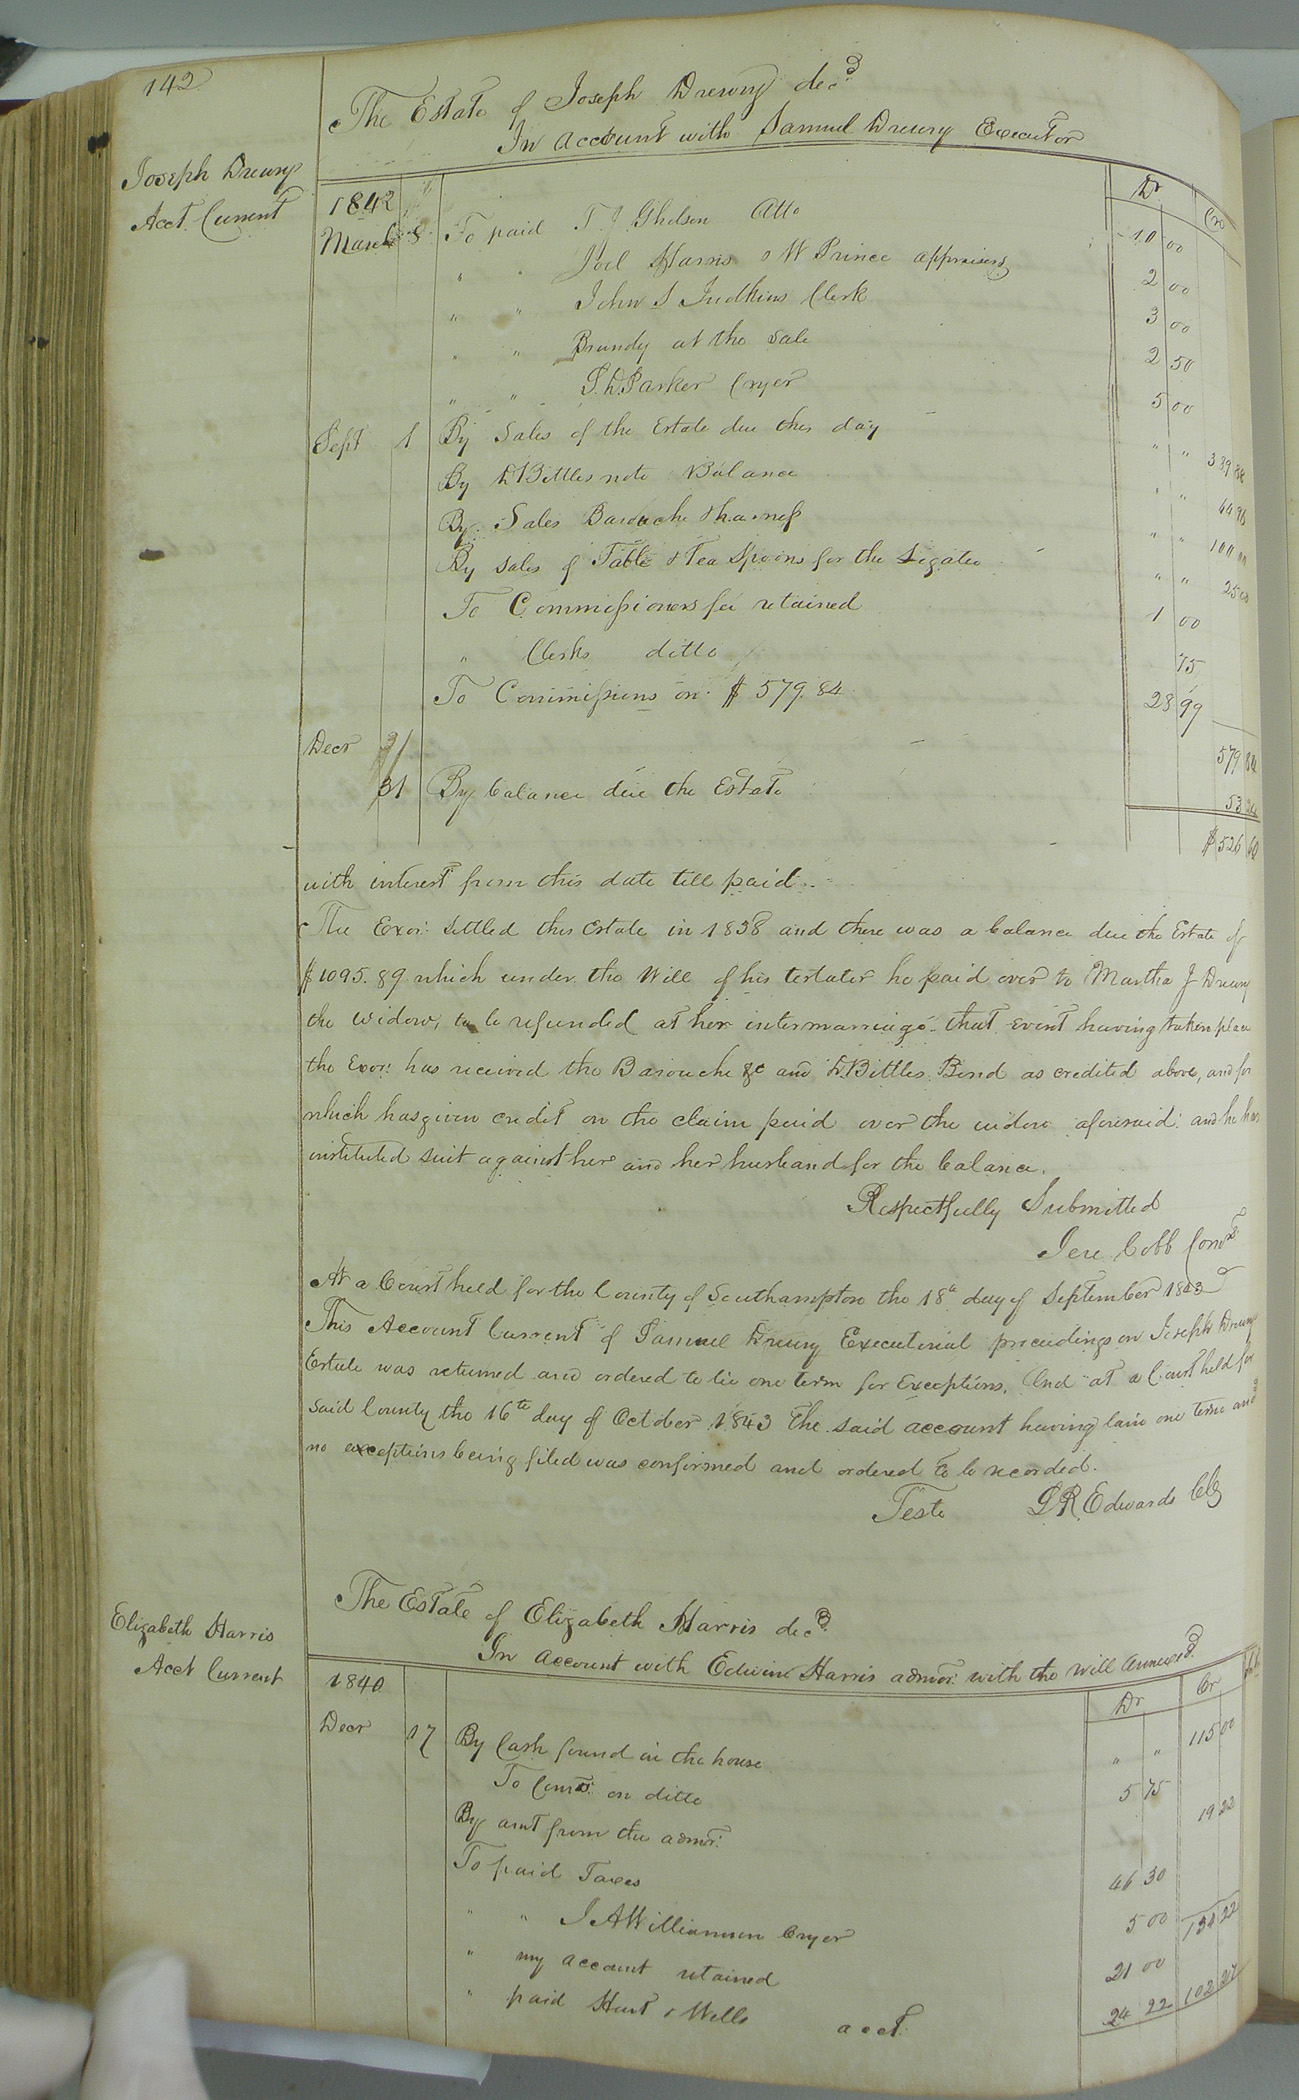 142
The Estate of Joseph Drewry decd
In Account with Samuel Drewry Executor
Joseph Drewry
Acct Current
Dr Cr
1842
March 8 To paid T J Gholson Atto 10 00
" " Joel Harris & W Prince appraisers 2 00
" " John S Judkins Clerk 3 00
" " Brandy at the Sale 2 50
" " P.D. Parker Cryer 5 00
Sept 1 By Sales of the Estate due this day " " 389 88
By D Bittles note Balance " " 44 96
By Sales Barouche & harness " " 100 00
By Sales of Table & Tea Spoons for the Legatee " " 25 00
To Commissioners fee retained 1 00
" Clerks ditto 75
To Commissions on $579.84 28 99
Decr 31 579 84
53 24
31 By balance due the Estate $526 60
with interest from this date till paid.
The Exor: Settled this Estate in 1838 and there was a balance due the Estate of
$1095.89 which under the Will of his testator he paid over to Martha J Drewry
the widow, to be refunded at her intermarriage. that event having taken place
the Exor: has received the Barouche &c and D Bittles Bond as credited above, and for
which has given credit on the claim paid over the widow aforesaid: and he has
instituted suit against her and her husband for the balance.
Respectfully Submitted
Jere Cobb Comr
At a Court held for the County of Southampton the 18th day of September 1843
This Account Current of Samuel Drewry Executorial proceedings on Joseph Drewry
Estate was returned and ordered to lie one term for Exceptions. And at a Court held for
said County the 16th day of October 1843 The said account having lain one term and
no exceptions being filed was confirmed and ordered to be recorded.
Teste L R Edwards Clk
The Estate of Elizabeth Harris decd
In account with Edwin Harris admor: with the will annexed.
Elizabeth Harris
Acct Current
1840 Dr Cr
Decr 17 By Cash found in the house " " 115 00
To Coms: on ditto 5 75
By amt from the admor: 19 22
To paid Taxes 46 30
" " J A Williamson Cryer 5 00 134 22
" my account retained 21 00
" paid Hart & Wells acct. 24 22 102 27